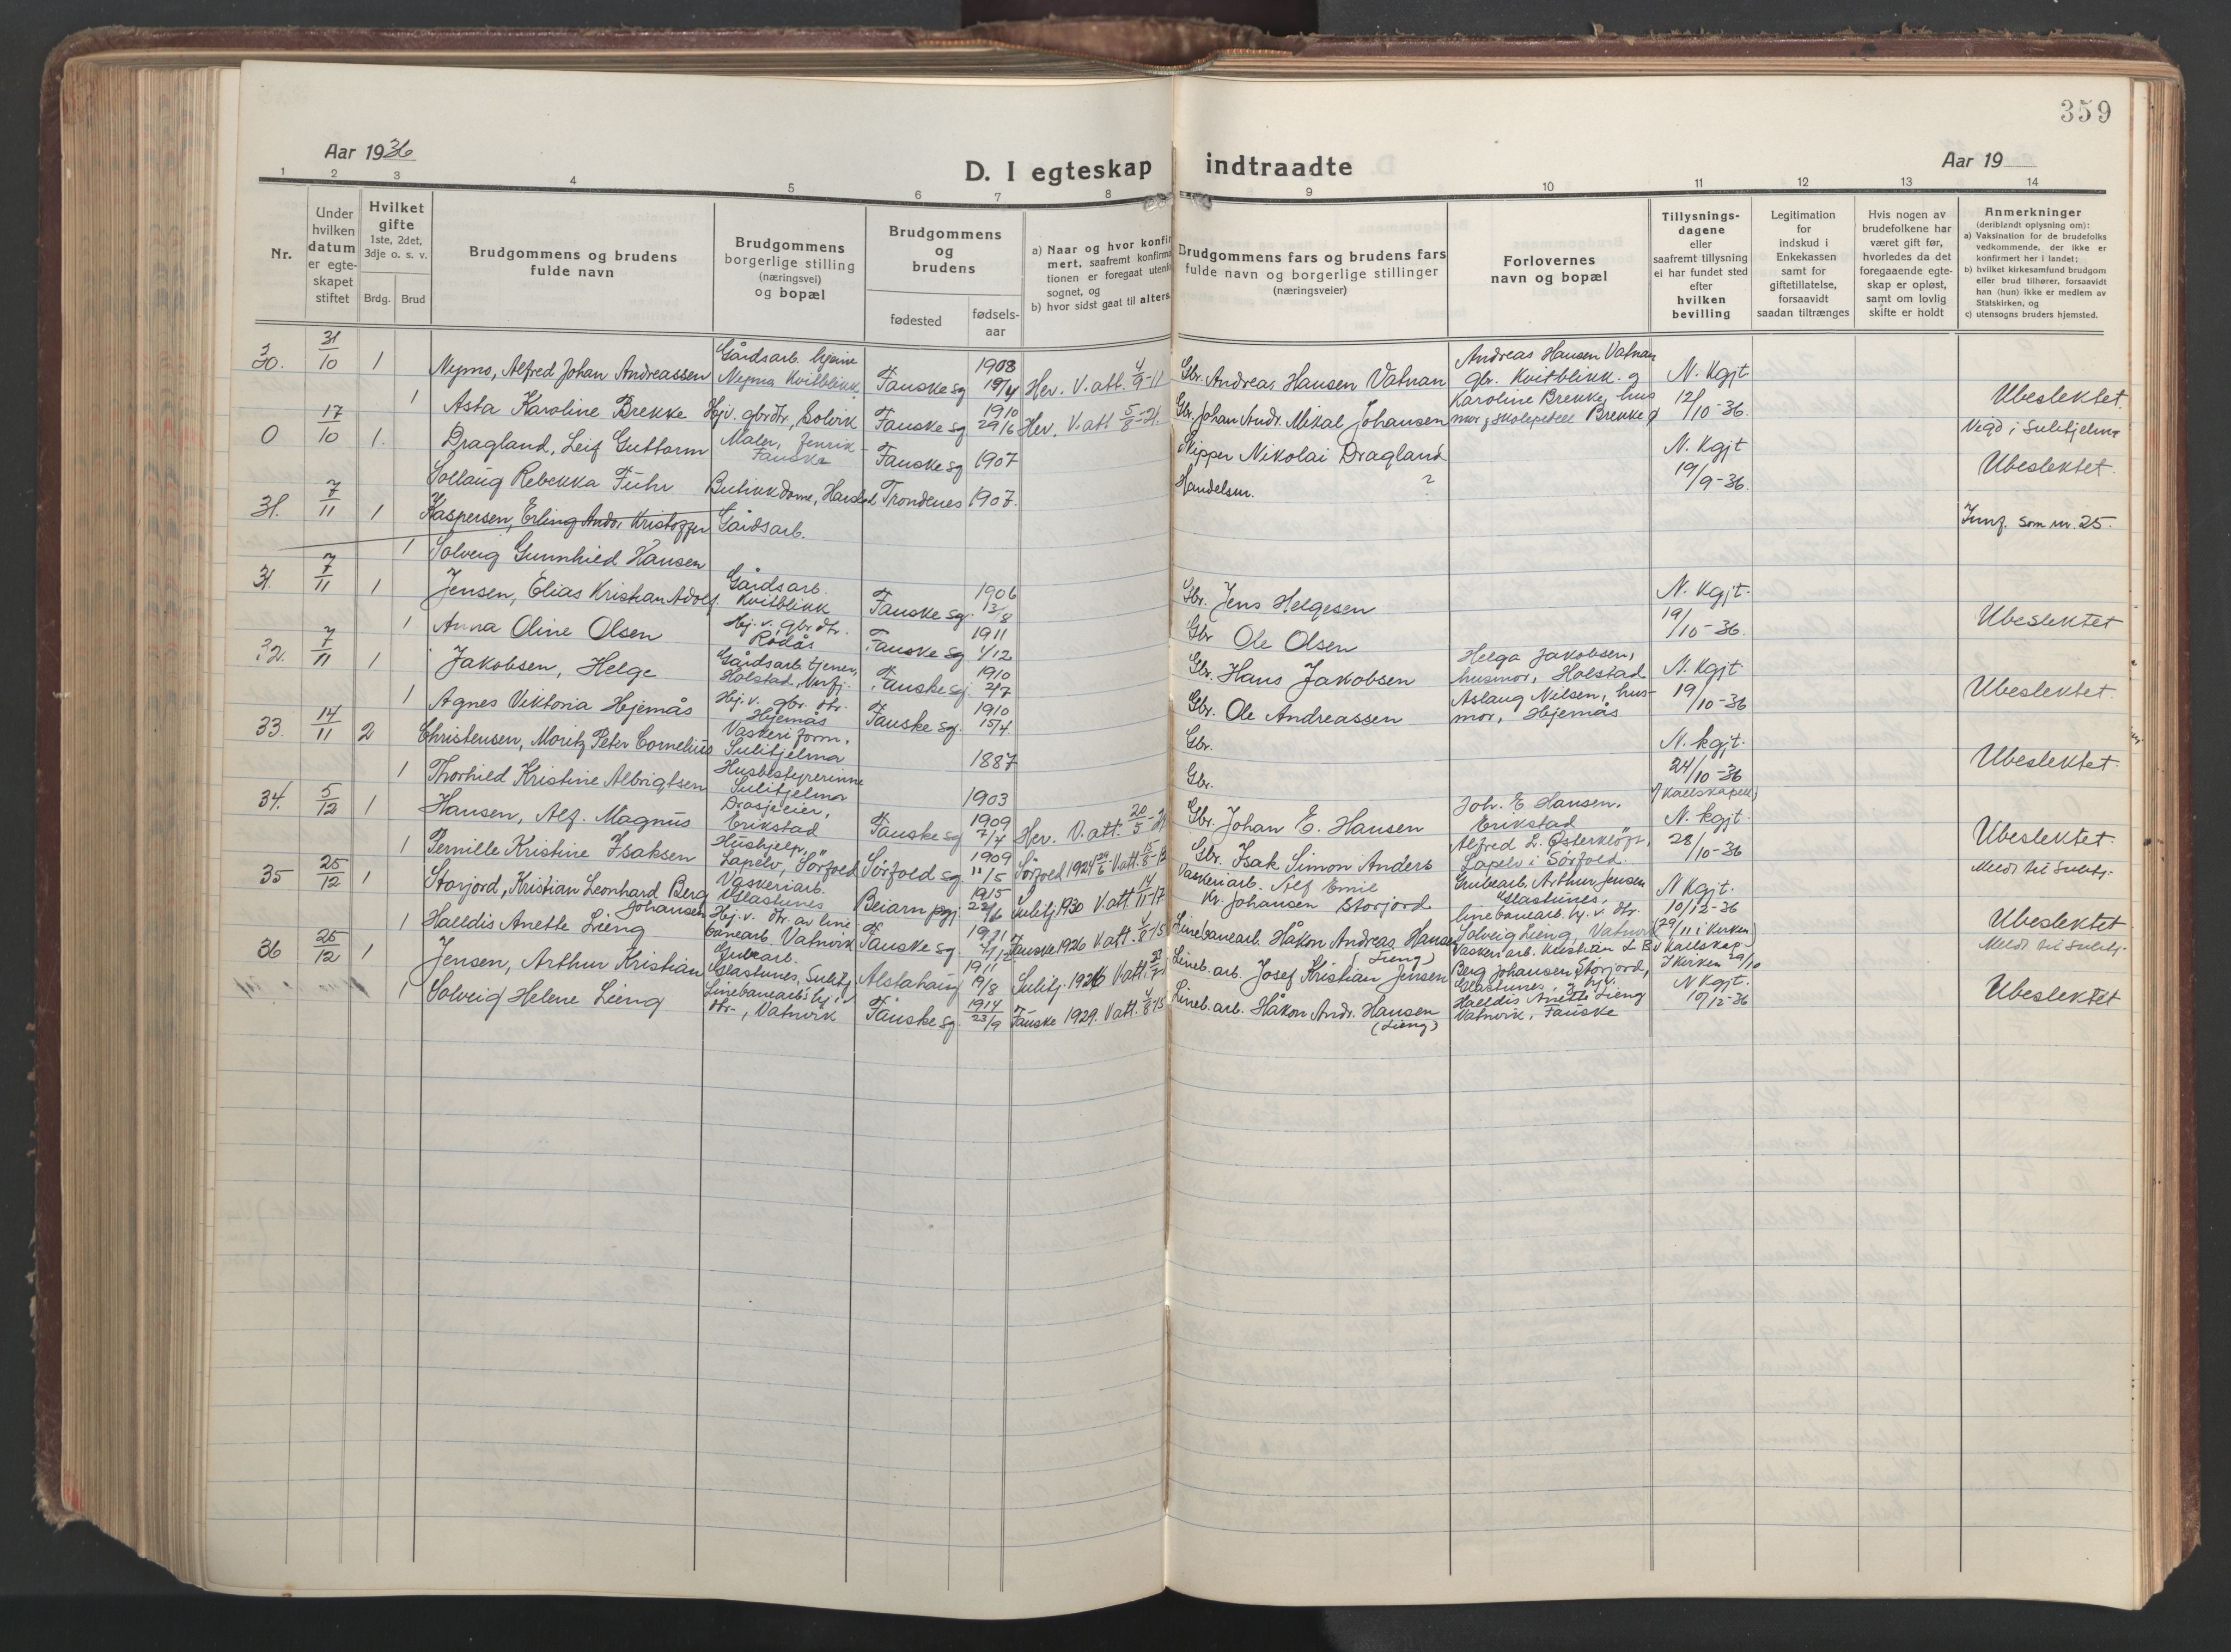 359
Aar 1936
D. I egteskap indtraadte
Aar 19
1 2 3 4 5 6 7 8 9 10 11 12 13 14
Nr.
Under hvilken datum er egte-skapet stiftet
Hvilket gifte
1ste, 2det, 3dje o. s. v.
Brdg. Brud
Brudgommens og brudens fulde navn
Brudgommens borgerlige stilling (næringsvei) og bopæl
Brudgommens og brudens
fødested
fødsels-aar
a) Naar og hvor konfir
mert, saafremt konfirma
tionen er foregaat utenfo
sognet, og
b) hvor sidst gaat til alters.
Brudgommens fars og brudens fars
fulde navn og borgerlige stillinger
(næringsveier)
Forlovernes
navn og bopæl
Tillysnings-
dagene
eller
saafremt tillysning
ei har fundet sted
efter
hvilken
bevilling
Legitimation
for
indskud i
Enkekassen
samt for
giftetillatelse,
forsaavidt
saadan tiltrænges
Hvis nogen av
brudefolkene har
været gift før,
hvorledes da det
foregaaende egte-
skap er opløst,
samt om lovlig
skifte er holdt
Anmerkninger
(deriblandt oplysning om):
a) Vaksination for de brudefolks
vedkommende, der ikke er
konfirmert her i landet;
b) hvilket kirkesamfund brudgom
eller brud tilhører, forsaavidt
han (hun) ikke er medlem av
Statskirken, og
c) utensogns bruders hjemsted.
30. 31/10 1 Nymo, Alfred Johan Andreassen Gårdsarb. hjeme Nymo Kvitblikk Fauske sg 1903 19/4 Her. V. att. 4/9-11 Gbr. Andreas Hansen Vatnan Andreas Hansen Vatnan gbr. Kvitblikk. og N. Kgjt
1 Asta Karoline Brekke Hjv. gbrdtr., Solvik Fauske sg 1910 29/6 Her. V. att 5/8-21. Gbr. Johan Andr. Mikal Johansen Karoline Brekke, hus mor, Brekke 12/10-36. Ubeslektet.
0 17/10 1. Dragland, Leif Guttorm Maler, Fauske Fauske sg 1907 Skipper Nikolai Dragland N. Kgjt Vigd i Sulitjelma
Sollaug Rebekka Führ Butikkdame, Harstad Trondenes 1907. Handelsm. ? 19/9-36. Ubeslektet.
31. 7/11 1 Kaspersen, Erling Andr. Kristoffer Gårdsarb. Innf. som nr. 25.
1 Solveig Gunnhild Hansen
31. 7/11 1 Jensen, Elias Kristian Adolf Gårdsarb. Kvitblikk Fauske sg. 1906 13/8 Gbr. Jens Helgesen N. Kgjt.
1 Anna Oline Olsen Hj. v. gbr. dtr. Rødås Fauske sg 1911 1/12 Gbr Ole Olsen 19/10-36. Ubeslektet
32. 7/11 1 Jakobsen, Helge Gårdsarb. tjener, Holstad, Fauske sg 1910 2/7 Gbr. Hans Jakobsen Helga Jakobsen, husmor, Holstad N. Kgjt
1 Agnes Viktoria Hjemås Hj. v. gbr. dtr. Hjemås Fauske sg. 1910 15/4 Gbr. Ole Andreassen Aslaug Nilsen, hus-mor, Hjemås 19/10-36 Ubeslektet.
33. 14/11 2 Christensen, Moritz Peter Cornelius Vaskeriform. Sulitjelma 1887 Gbr. N. kgjt.
1 Thorhild Kristine Albrigtsen Husbestyrerinne Sulitjelma 1903 Gbr. 24/10-36 Ubeslektet.
34. 5/12 1 Hansen, Alf. Magnus Drosjeeier, Erikstad Fauske sg 1909 7/4 Her. V. att. 20/5 Gbr. Johan E. Hansen Joh. E Hansen. Erikstad N. kgjt.
1 Pernille Kristine Isaksen Hushjelp, Lapelv, Sørfold Sørfold sg 1909 11/5 Sørfold 1924 V. att. 15/8 Gbr. Isak Simon Anders Alfred L. Østerkløft, Lapelv i Sørfold. 28/10-36 Ubeslektet.
35 25/12 1 Storjord, Kristian Leonhard Berg Johansen Vaskeriarb. Glastunes Beiarn pgj 1915 22/6 Sulitj. 1930 V. att 14/11-17 Vaskeriarb. Alf Emil Kr. Johansen Storjord Grubearb. Arthur Jensen Glastunes, N Kgjt. Meldt til Sulitj.
1 Halldis Anette Lieng Hj. v. dtr. av line banearb. Vatnvik Fauske sg 1911 Fauske 1926 V att. 4/8-15 Linebanearb. Håkon Andreas Hansen (Lieng) linebanearb. hj. v. dtr. Solveig Lieng, Vatnvik 10/12-36 (29/11 i Kirken) Ubeslektet
36 25/12 1 Jensen, Arthur Kristian Grubearb. Glastunes, Sulitj. Alstahaug 1911 19/8 Sulitj. 1926 V att. Lineb. arb. Josef Kristian Jensen Vaskeriarb. Kristian L. B. Berg Johansen Storjord, Glastunes, og hjv. N Kgjt. Meldt til Sulitj.
1 Solveig Helene Lieng Linebanearb's hj. v. dtr., Vatnvik Fauske sg 1914 23/9 Fauske 1929. V att. 4/8-15 Lineb. arb. Håkon Andr. Hansen (Lieng) Halldis Anette Lieng Vatnvik, Fauske 10/12-36 Ubeslektet